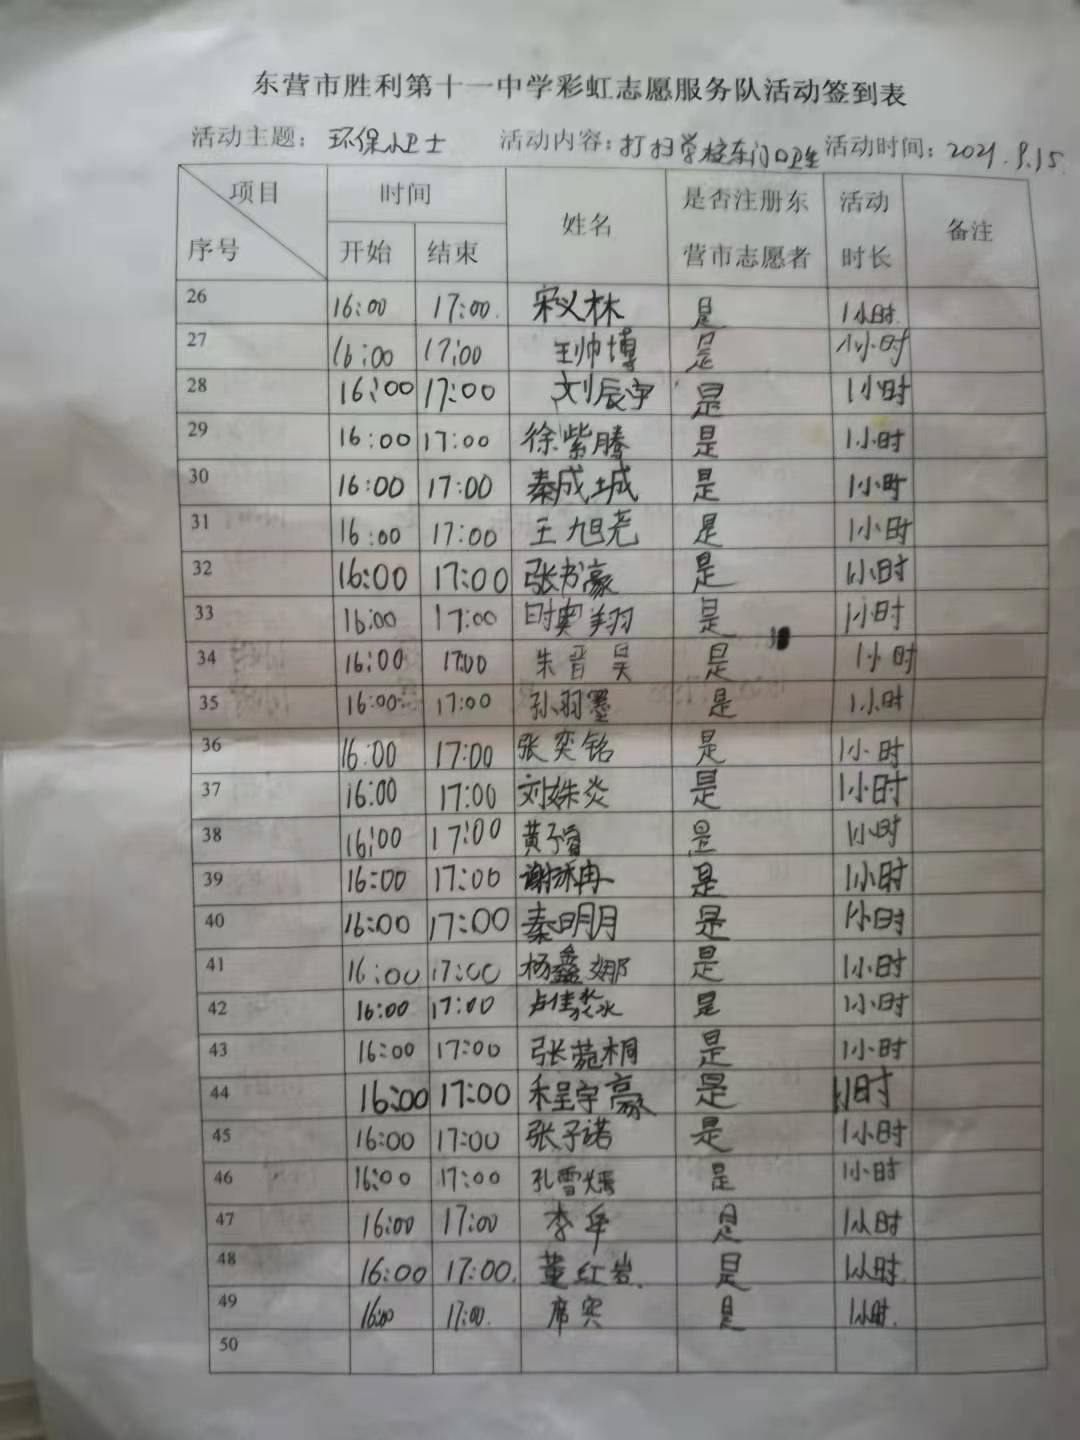 东营市胜利第十一中学彩虹志愿服务队活动签到表
活动主题: 环保小卫士 活动内容: 打扫学校东门口卫生 活动时间: 2021.9.15
项目 时间 姓名 是否注册东营市志愿者 活动时长 备注
序号 开始 结束
26 16:00 17:00 宋义林 是 1小时
27 16:00 17:00 王帅博 是 1小时
28 16:00 17:00 刘辰宇 是 1小时
29 16:00 17:00 徐紫腾 是 1小时
30 16:00 17:00 秦成城 是 1小时
31 16:00 17:00 王旭尧 是 1小时
32 16:00 17:00 张书豪 是 1小时
33 16:00 17:00 时奥翔 是 1小时
34 16:00 17:00 朱晋昊 是 1小时
35 16:00 17:00 孙羽墨 是 1小时
36 16:00 17:00 张奕铭 是 1小时
37 16:00 17:00 刘姝炎 是 1小时
38 16:00 17:00 黄子睿 是 1小时
39 16:00 17:00 是 1小时
40 16:00 17:00 秦明月 是 1小时
41 16:00 17:00 杨鑫娜 是 1小时
42 16:00 17:00 是 1小时
43 16:00 17:00 张菀桐 是 1小时
44 16:00 17:00 程宇豪 是 1小时
45 16:00 17:00 张子诺 是 1小时
46 16:00 17:00 是 1小时
47 16:00 17:00 李军 是 1小时
48 16:00 17:00 董红岩 是 1小时
49 16:00 17:00 席宾 是 1小时
50